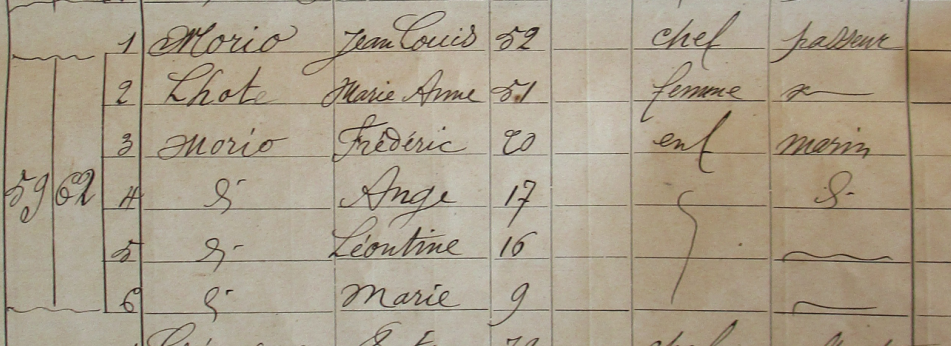 1 Morio Jean Louis 52 chef passeur
2 Lhote Marie Anne 51 femme
3 Morio Frédéric 20 enf marin
59 62 4 d° Ange 17 d°
5 d° Léontine 16
6 d° Marie 9